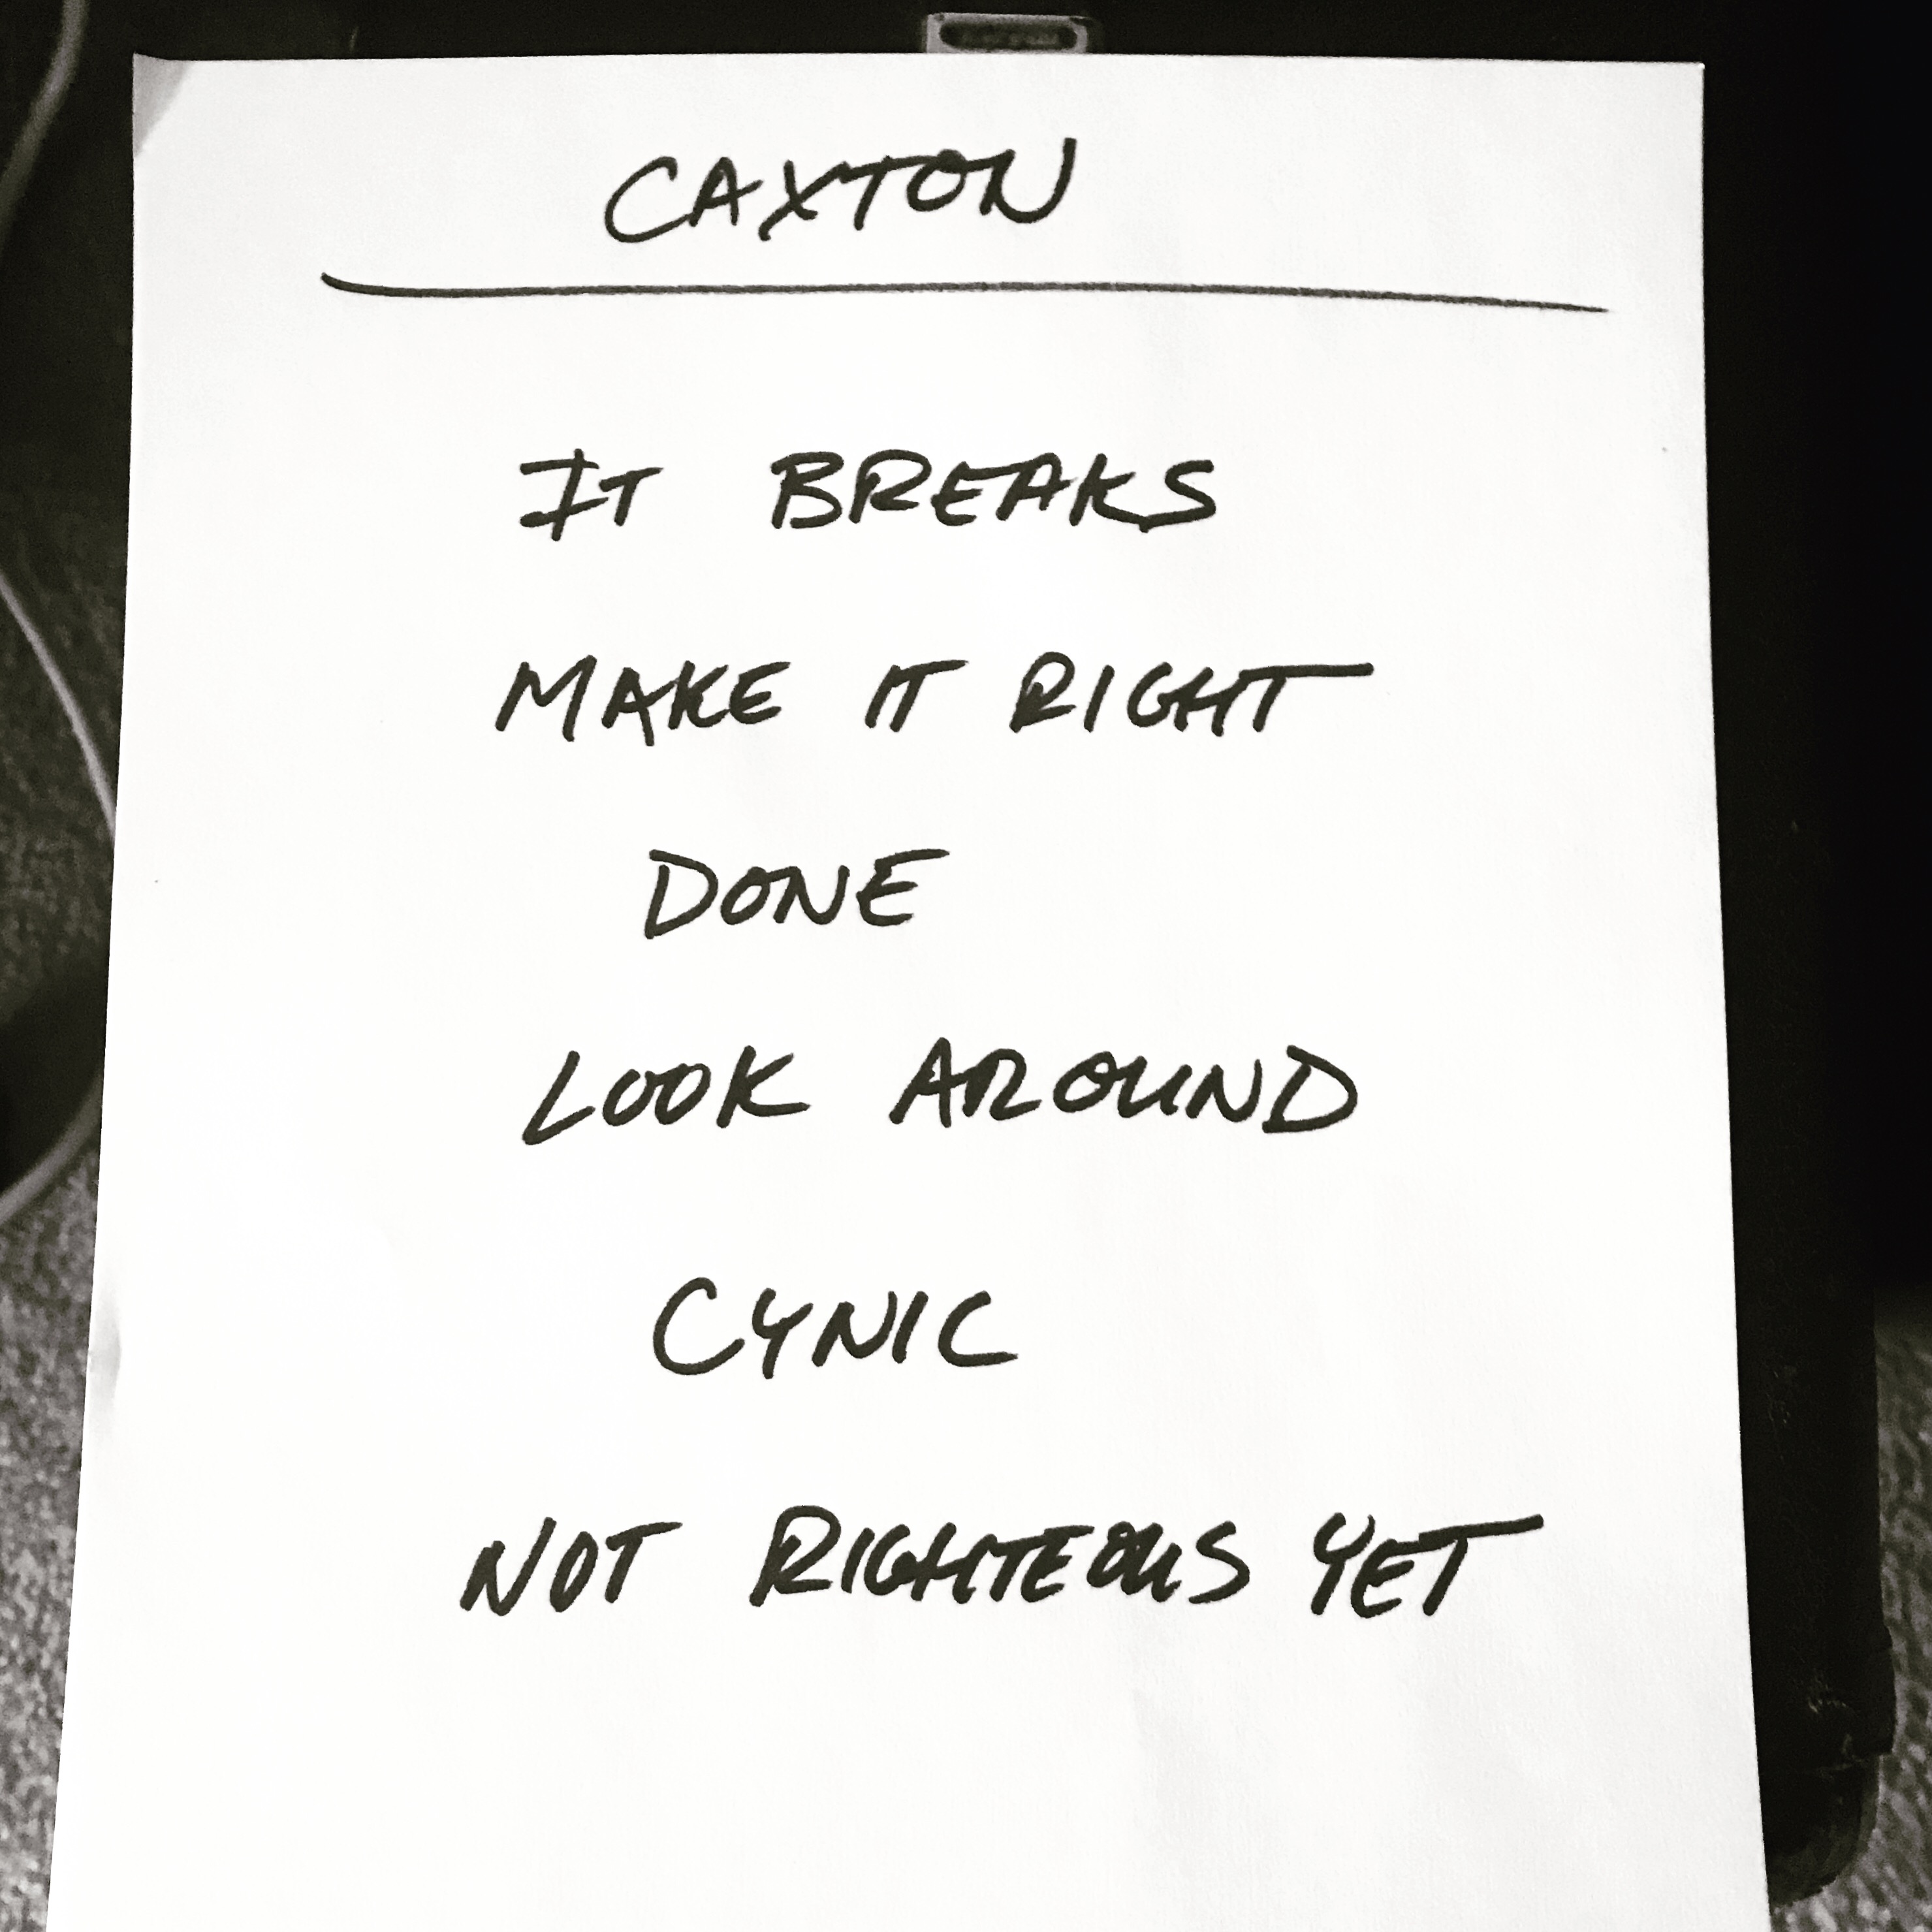 CAXTON
IT BREAKS
MAKE IT RIGHT
DONE
LOOK AROUND
CYNIC
NOT RIGHTEOUS YET